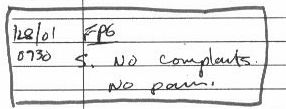 1/28/01 FPG
0730 S. No complaints.
No pain.